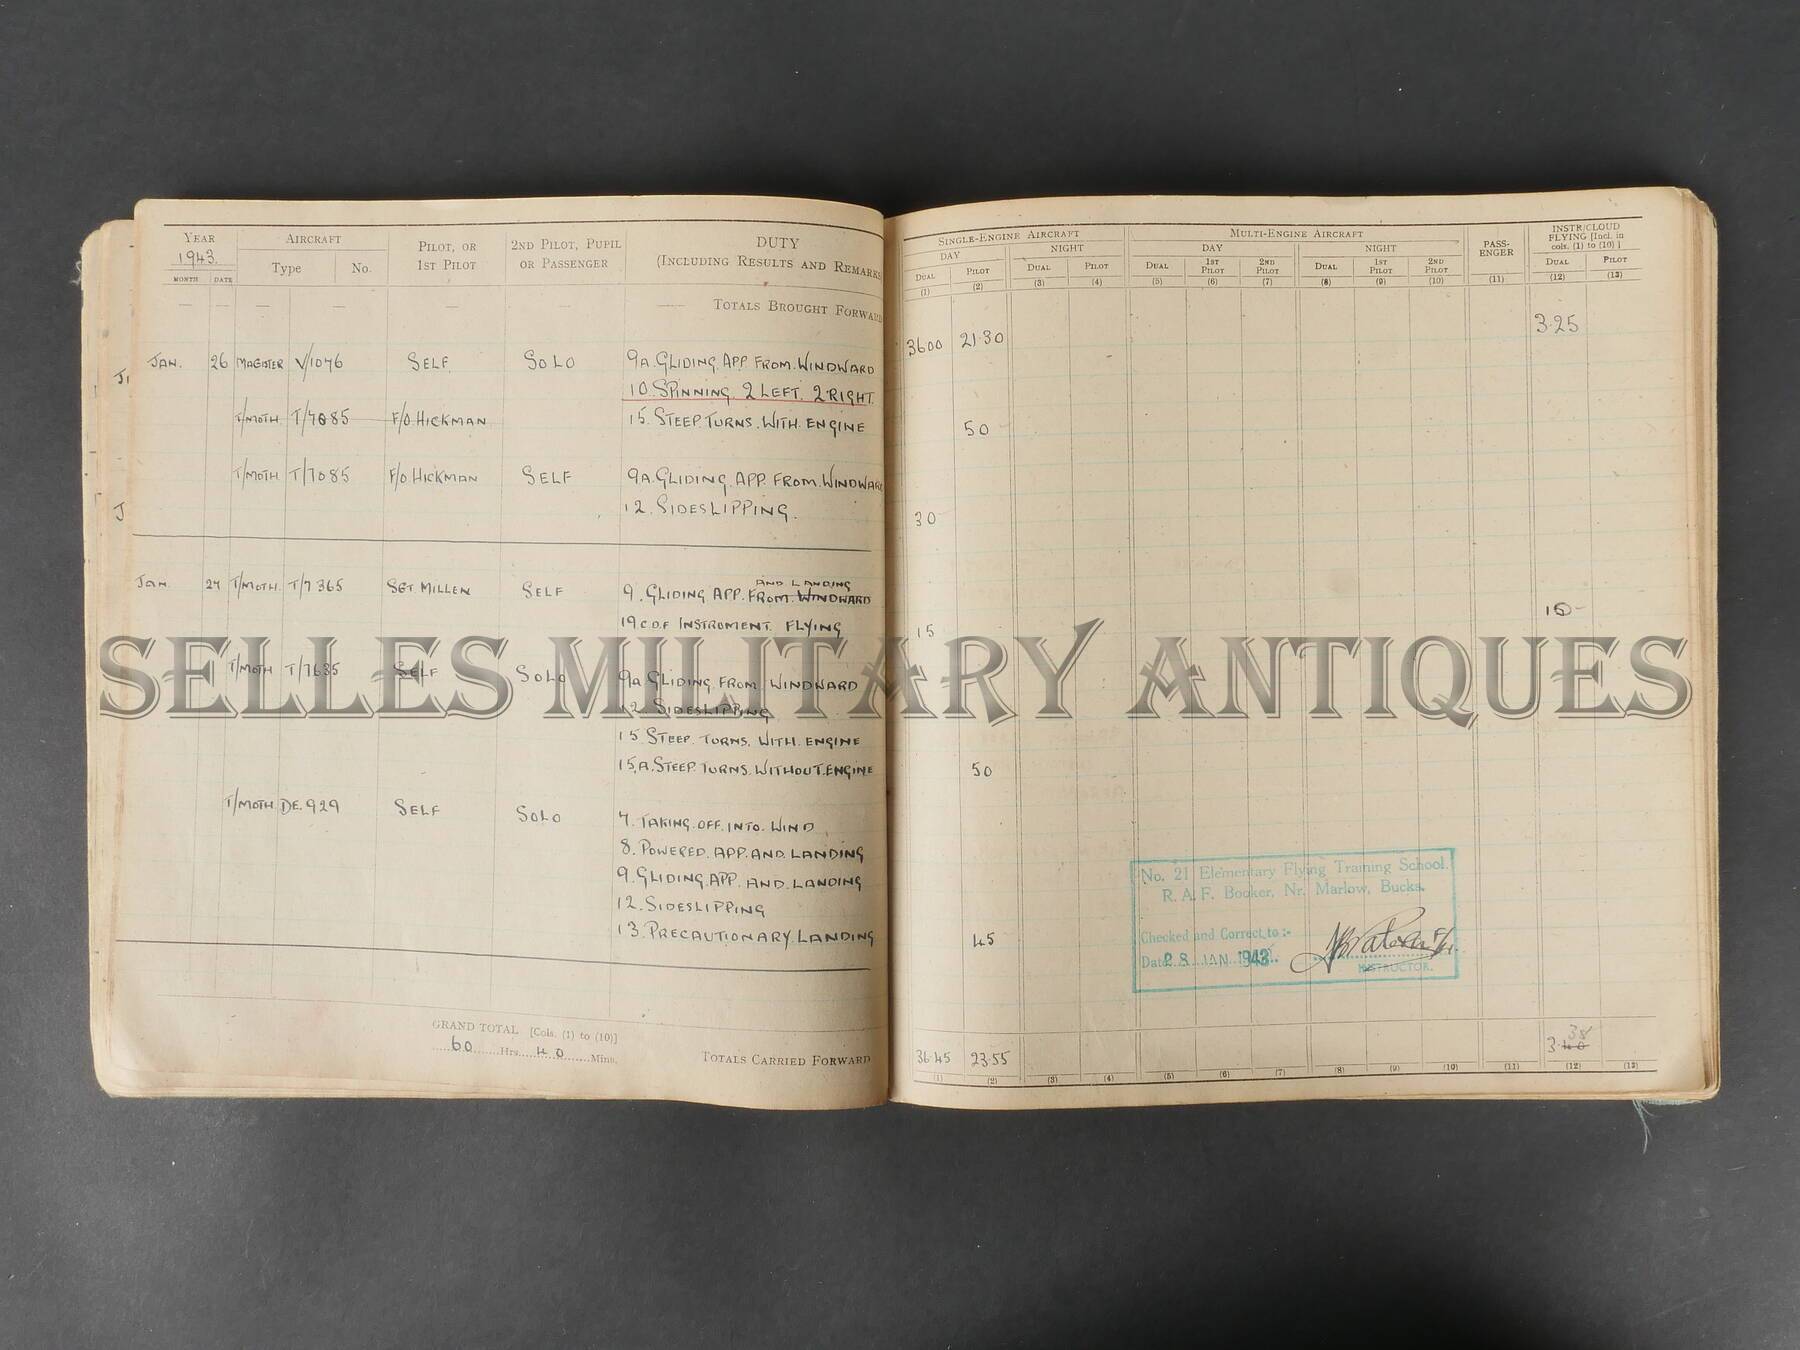 YEAR AIRCRAFT PILOT, OR 2ND PILOT, PUPIL DUTY
1943. Type No. 1ST PILOT OR PASSENGER (INCLUDING RESULTS AND REMARKS
MONTH DATE
— — — — — — — TOTALS BROUGHT FORWARD
JAN. 26 MAGISTER V/1076 SELF. SOLO 9A. GLIDING. APP. FROM. WINDWARD
10. SPINNING. 2 LEFT. 2 RIGHT.
T/MOTH. T/7085 F/O. HICKMAN 15. STEEP. TURNS. WITH. ENGINE
T/MOTH. T/7085 F/O. HICKMAN SELF 9A. GLIDING. APP. FROM. WINDWARD
12. SIDESLIPPING.
JAN. 27 T/MOTH. T/7365 SGT MILLEN SELF 9. GLIDING. APP. FROM. WINDWARD AND LANDING
19 C.D.F INSTROMENT. FLYING
T/MOTH T/7635 SELF SOLO 9A GLIDING. FROM. WINDWARD
12. SIDESLIPPING
15. STEEP. TURNS. WITH. ENGINE
15.A. STEEP. TURNS. WITHOUT. ENGINE
T/MOTH. DE. 929 SELF SOLO 7. TAKING. OFF. INTO. WIND
8. POWERED. APP. AND. LANDING
9. GLIDING. APP. AND. LANDING
12. SIDESLIPPING
13. PRECAUTIONARY. LANDING
GRAND TOTAL [Cols. (1) to (10)]
60 Hrs. 40 Mins.
TOTALS CARRIED FORWARD
SINGLE-ENGINE AIRCRAFT MULTI-ENGINE AIRCRAFT PASS-ENGER INSTR/CLOUD FLYING [Incl. in cols. (1) to (10)]
DAY NIGHT DAY NIGHT
DUAL PILOT DUAL PILOT DUAL 1ST PILOT 2ND PILOT DUAL 1ST PILOT 2ND PILOT DUAL PILOT
(1) (2) (3) (4) (5) (6) (7) (8) (9) (10) (11) (12) (13)
3600 21·30 3·25
50
30
15
50
45
No. 21 Elementary Flying Training School.
R. A. F. Booker, Nr. Marlow, Bucks.
Checked and Correct to :-
Date 28 JAN 1943
INSTRUCTOR.
36·45 23·55 3·40 38
(1) (2) (3) (4) (5) (6) (7) (8) (9) (10) (11) (12) (13)
SELLES MILITARY ANTIQUES